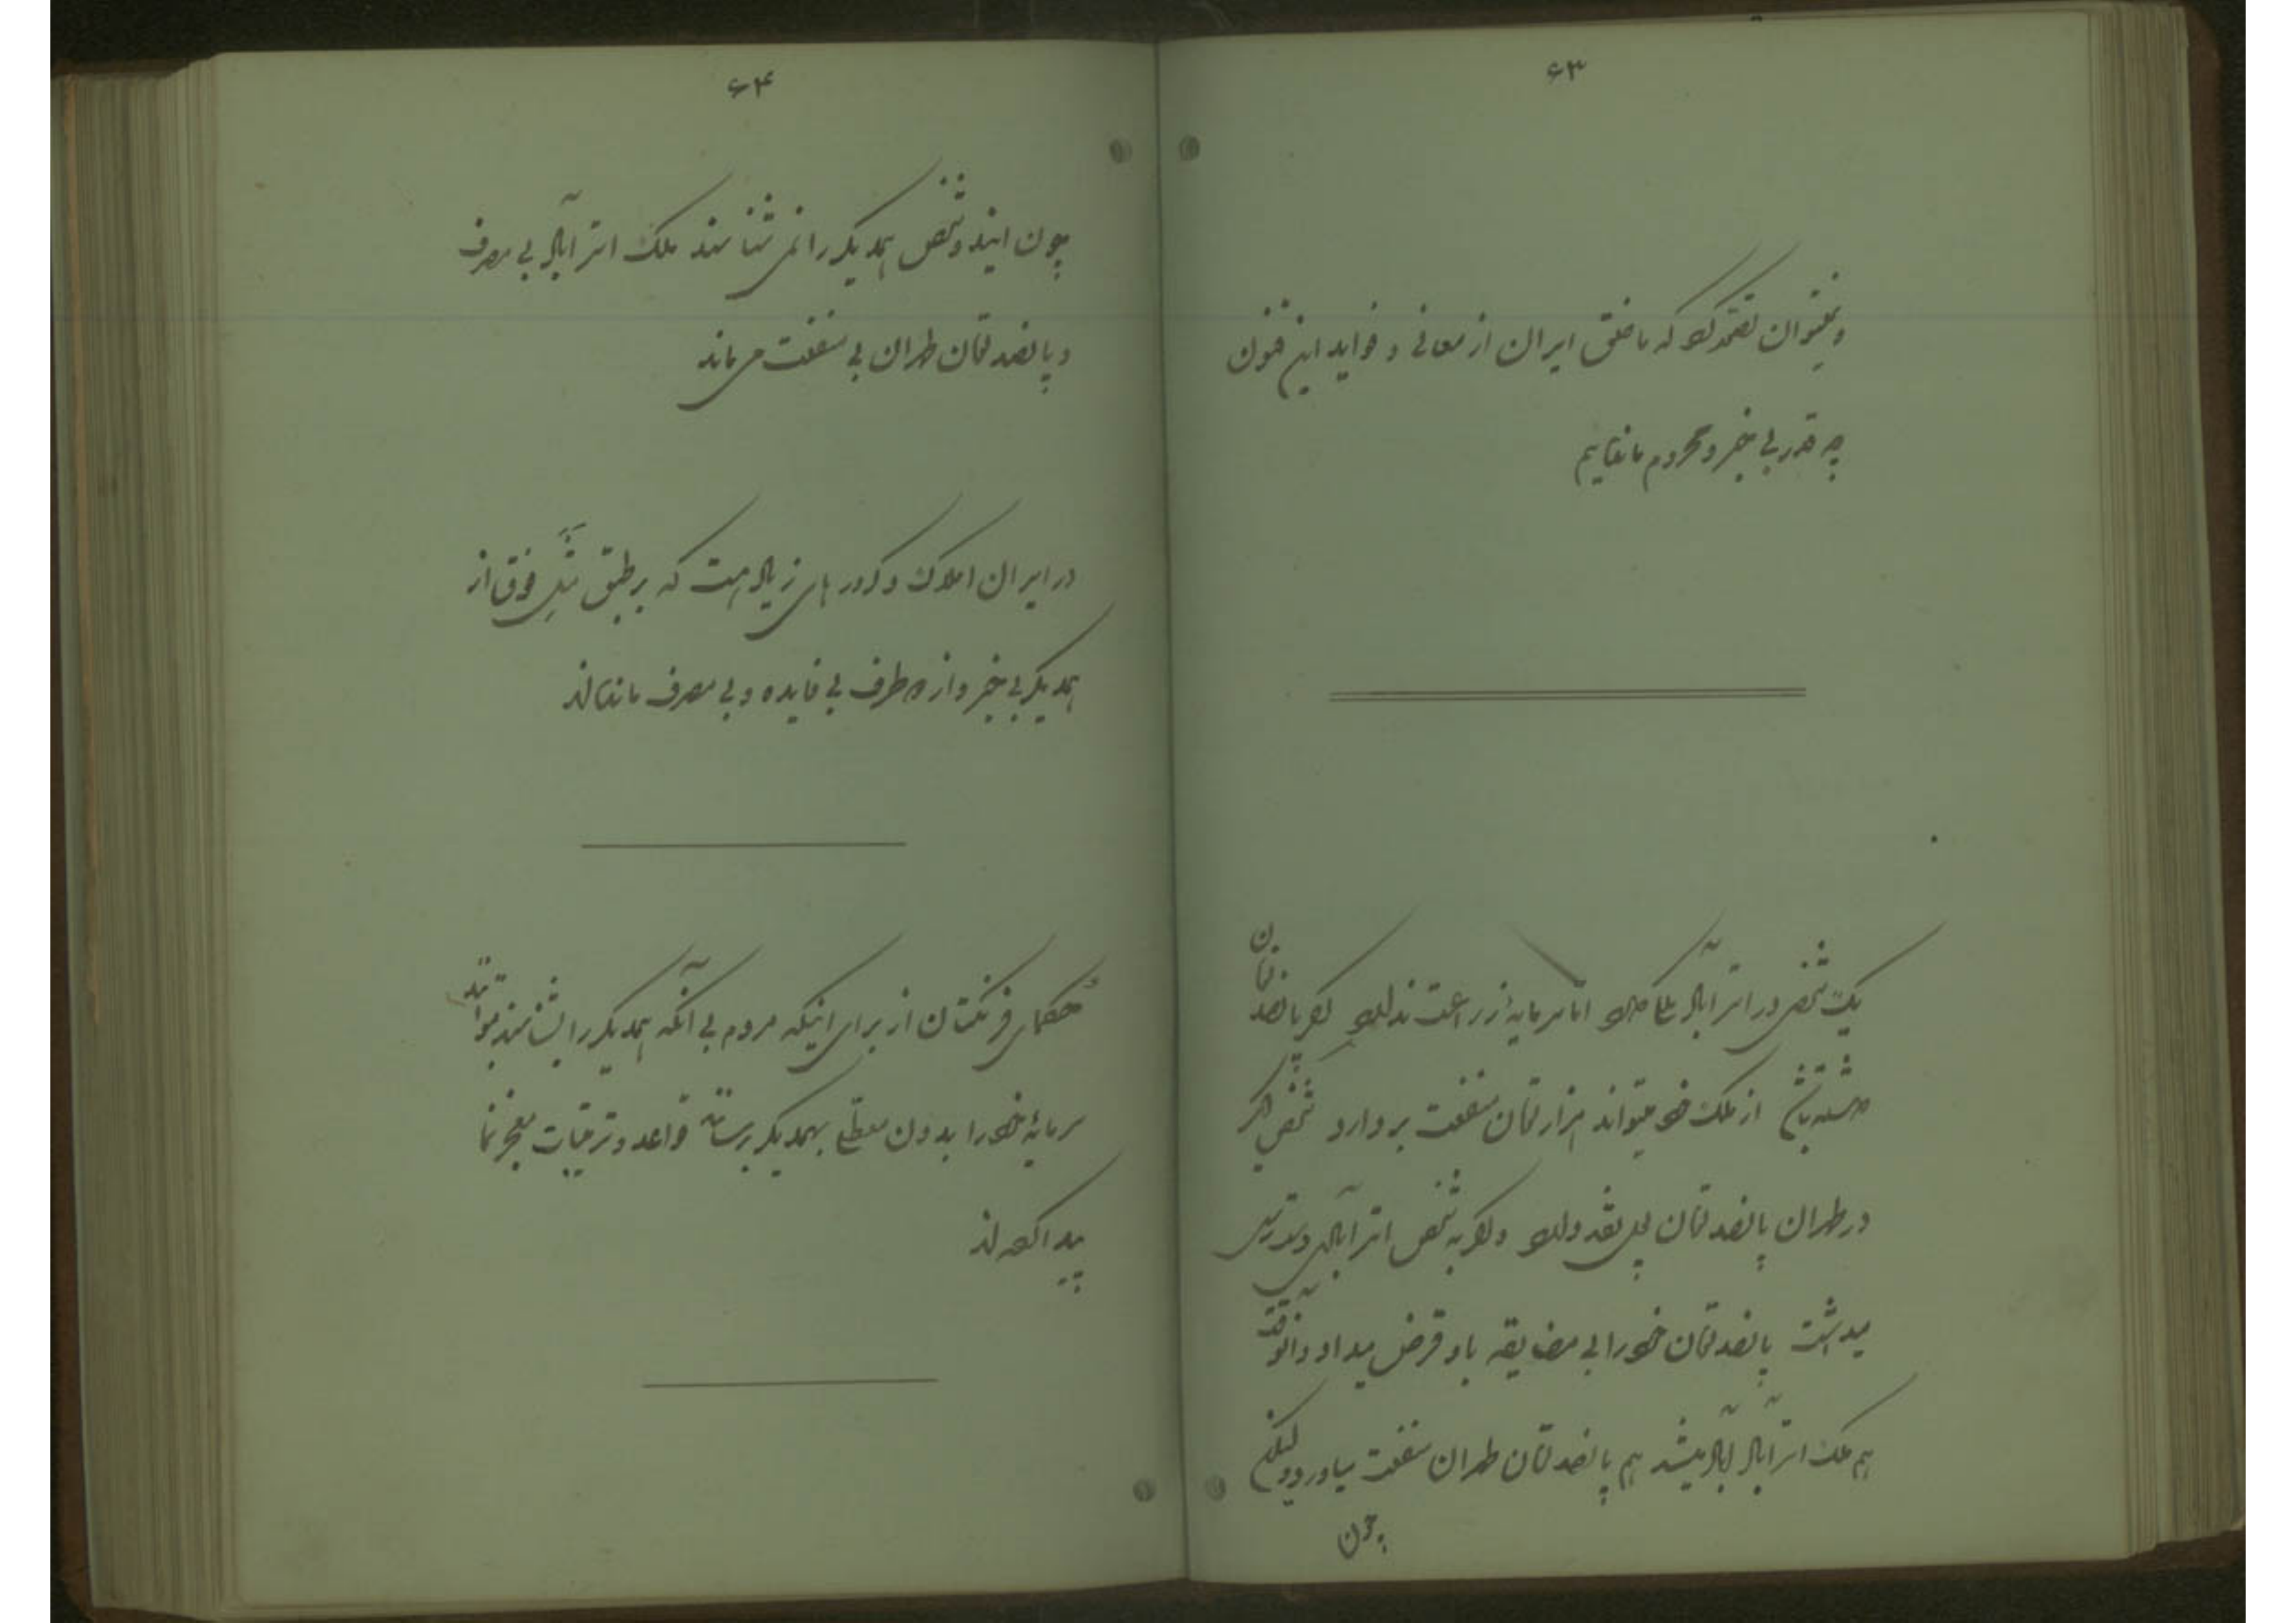 ۶۳
و نمیتوان تصور کرد که ما خلق ایران از معانی و فواید این فنون
چه قدر بی خبر و محروم مانده‌ایم
یک شخص در استرآباد ملک دارد اما سرمایه زراعت ندارد اگر پانصد تومان
داشته باشد از ملک خود میتواند هزار تومان منفعت بردارد شخص دیگر
در طهران پانصد تومان پول نقد دارد و اگر به شخص استرآبادی دسترسی
میداشت پانصد تومان خود را بی مضایقه باو قرض میداد و آنوقت
هم ملک استرآباد آباد میشد هم پانصد تومان طهران منفعت میاورد ولیکن
چون
۶۴
چون این دو شخص همدیگر را نمی شناسند ملک استرآباد بی مصرف
و پانصد تومان طهران بی منفعت می‌ماند
در ایران املاک و کرورهای زیاد هست که بر طبق مثل فوق از
همدیگر بی خبر و از هر طرف بی فایده و بی مصرف مانده‌اند
حکمای فرنگستان از برای اینکه مردم بی آنکه همدیگر را بشناسند بتوانند
سرمایه خود را بدون معطلی بهمدیگر برسانند قواعد و ترتیبات معجزنما
پیدا کرده‌اند